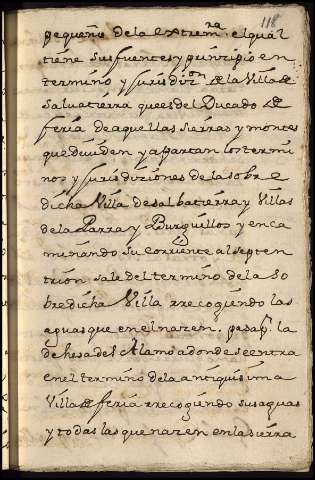 118
pequeño de la extrem.ra el qual
tiene sus fuentes y prinzipio en
termino y jurisdizon de la Villa de
Saluatierra que es del Ducado de
feria de aquellas sierras y montes
que diuiden y apartan los termi
nos y jurisdiziones de la sobre
dicha Villa de Salbatierra y Villas
de la Parra y Burguillos y enca
minando su corriente al septen
trion sale del termino de la so
bredicha Villa rrecogiendo las
aguas que en el nazen. pasa pr la
dehesa del Alamo a donde se entra
en el termino de la antiquisima
Villa de feria rrecogiendo sus aguas
y todas las que nazen en la sierra